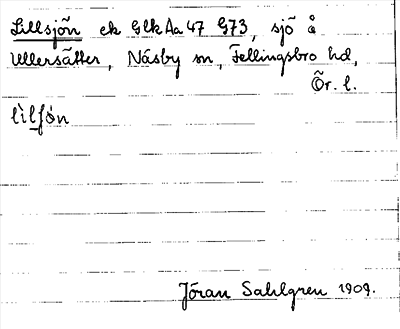 Lillsjön ek GlkAa 47 G73, sjö å
Ullersätter, Näsby sn, Fellingsbro hd,
Ör. l.
Jöran Sahlgren 1909.